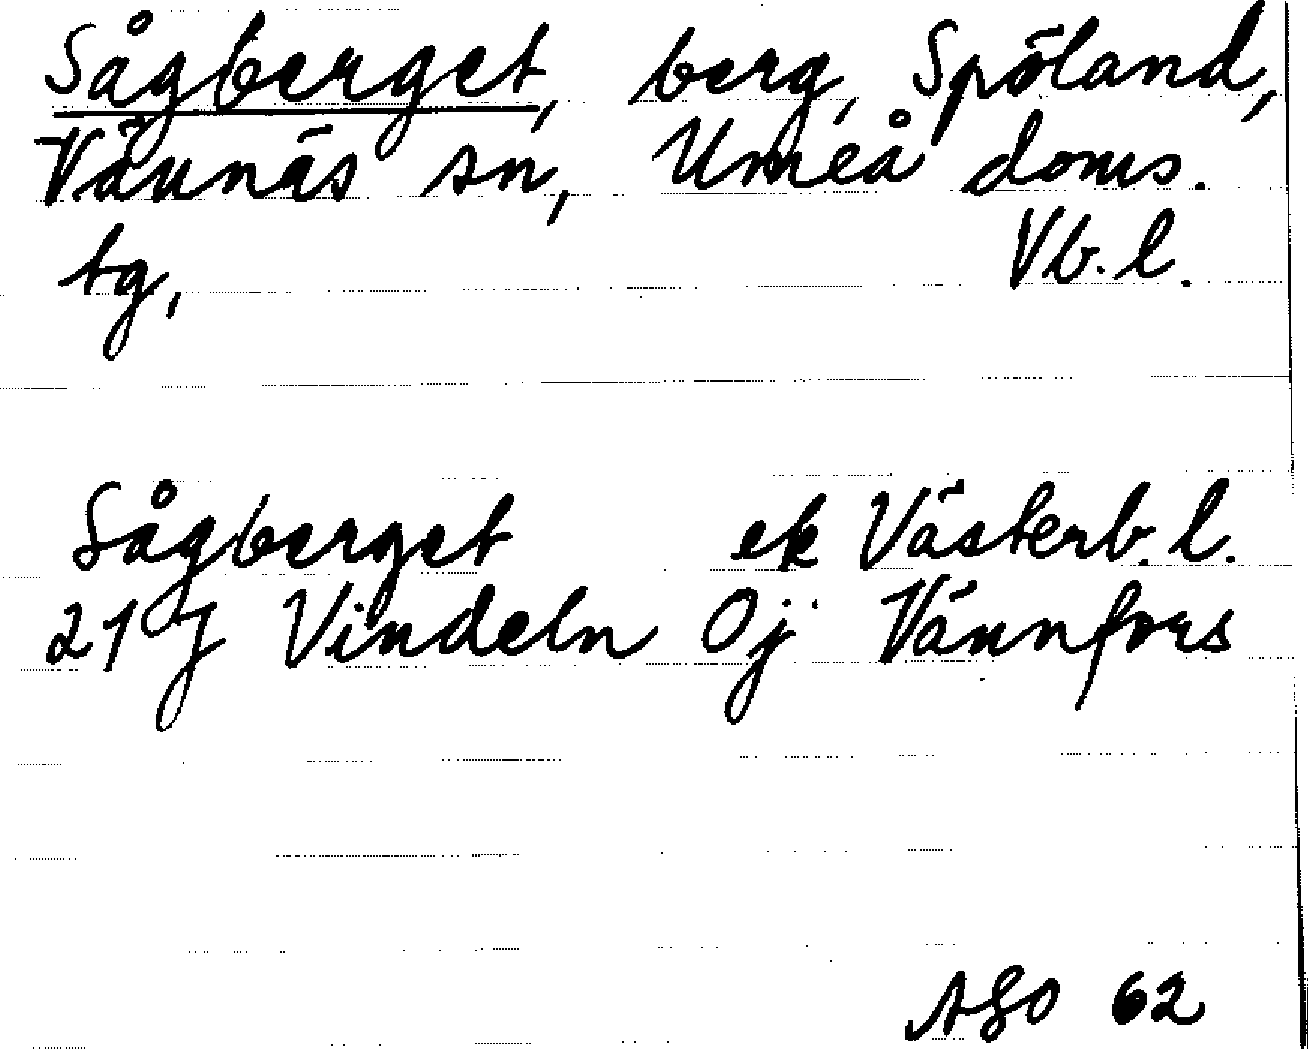 Sågberget, berg, Spöland,
Vännäs sn, Umeå doms.
tg, Vb. l.
Sågberget ek Västerb. l.
21 J Vindeln Öj Vännfors
ASO 62